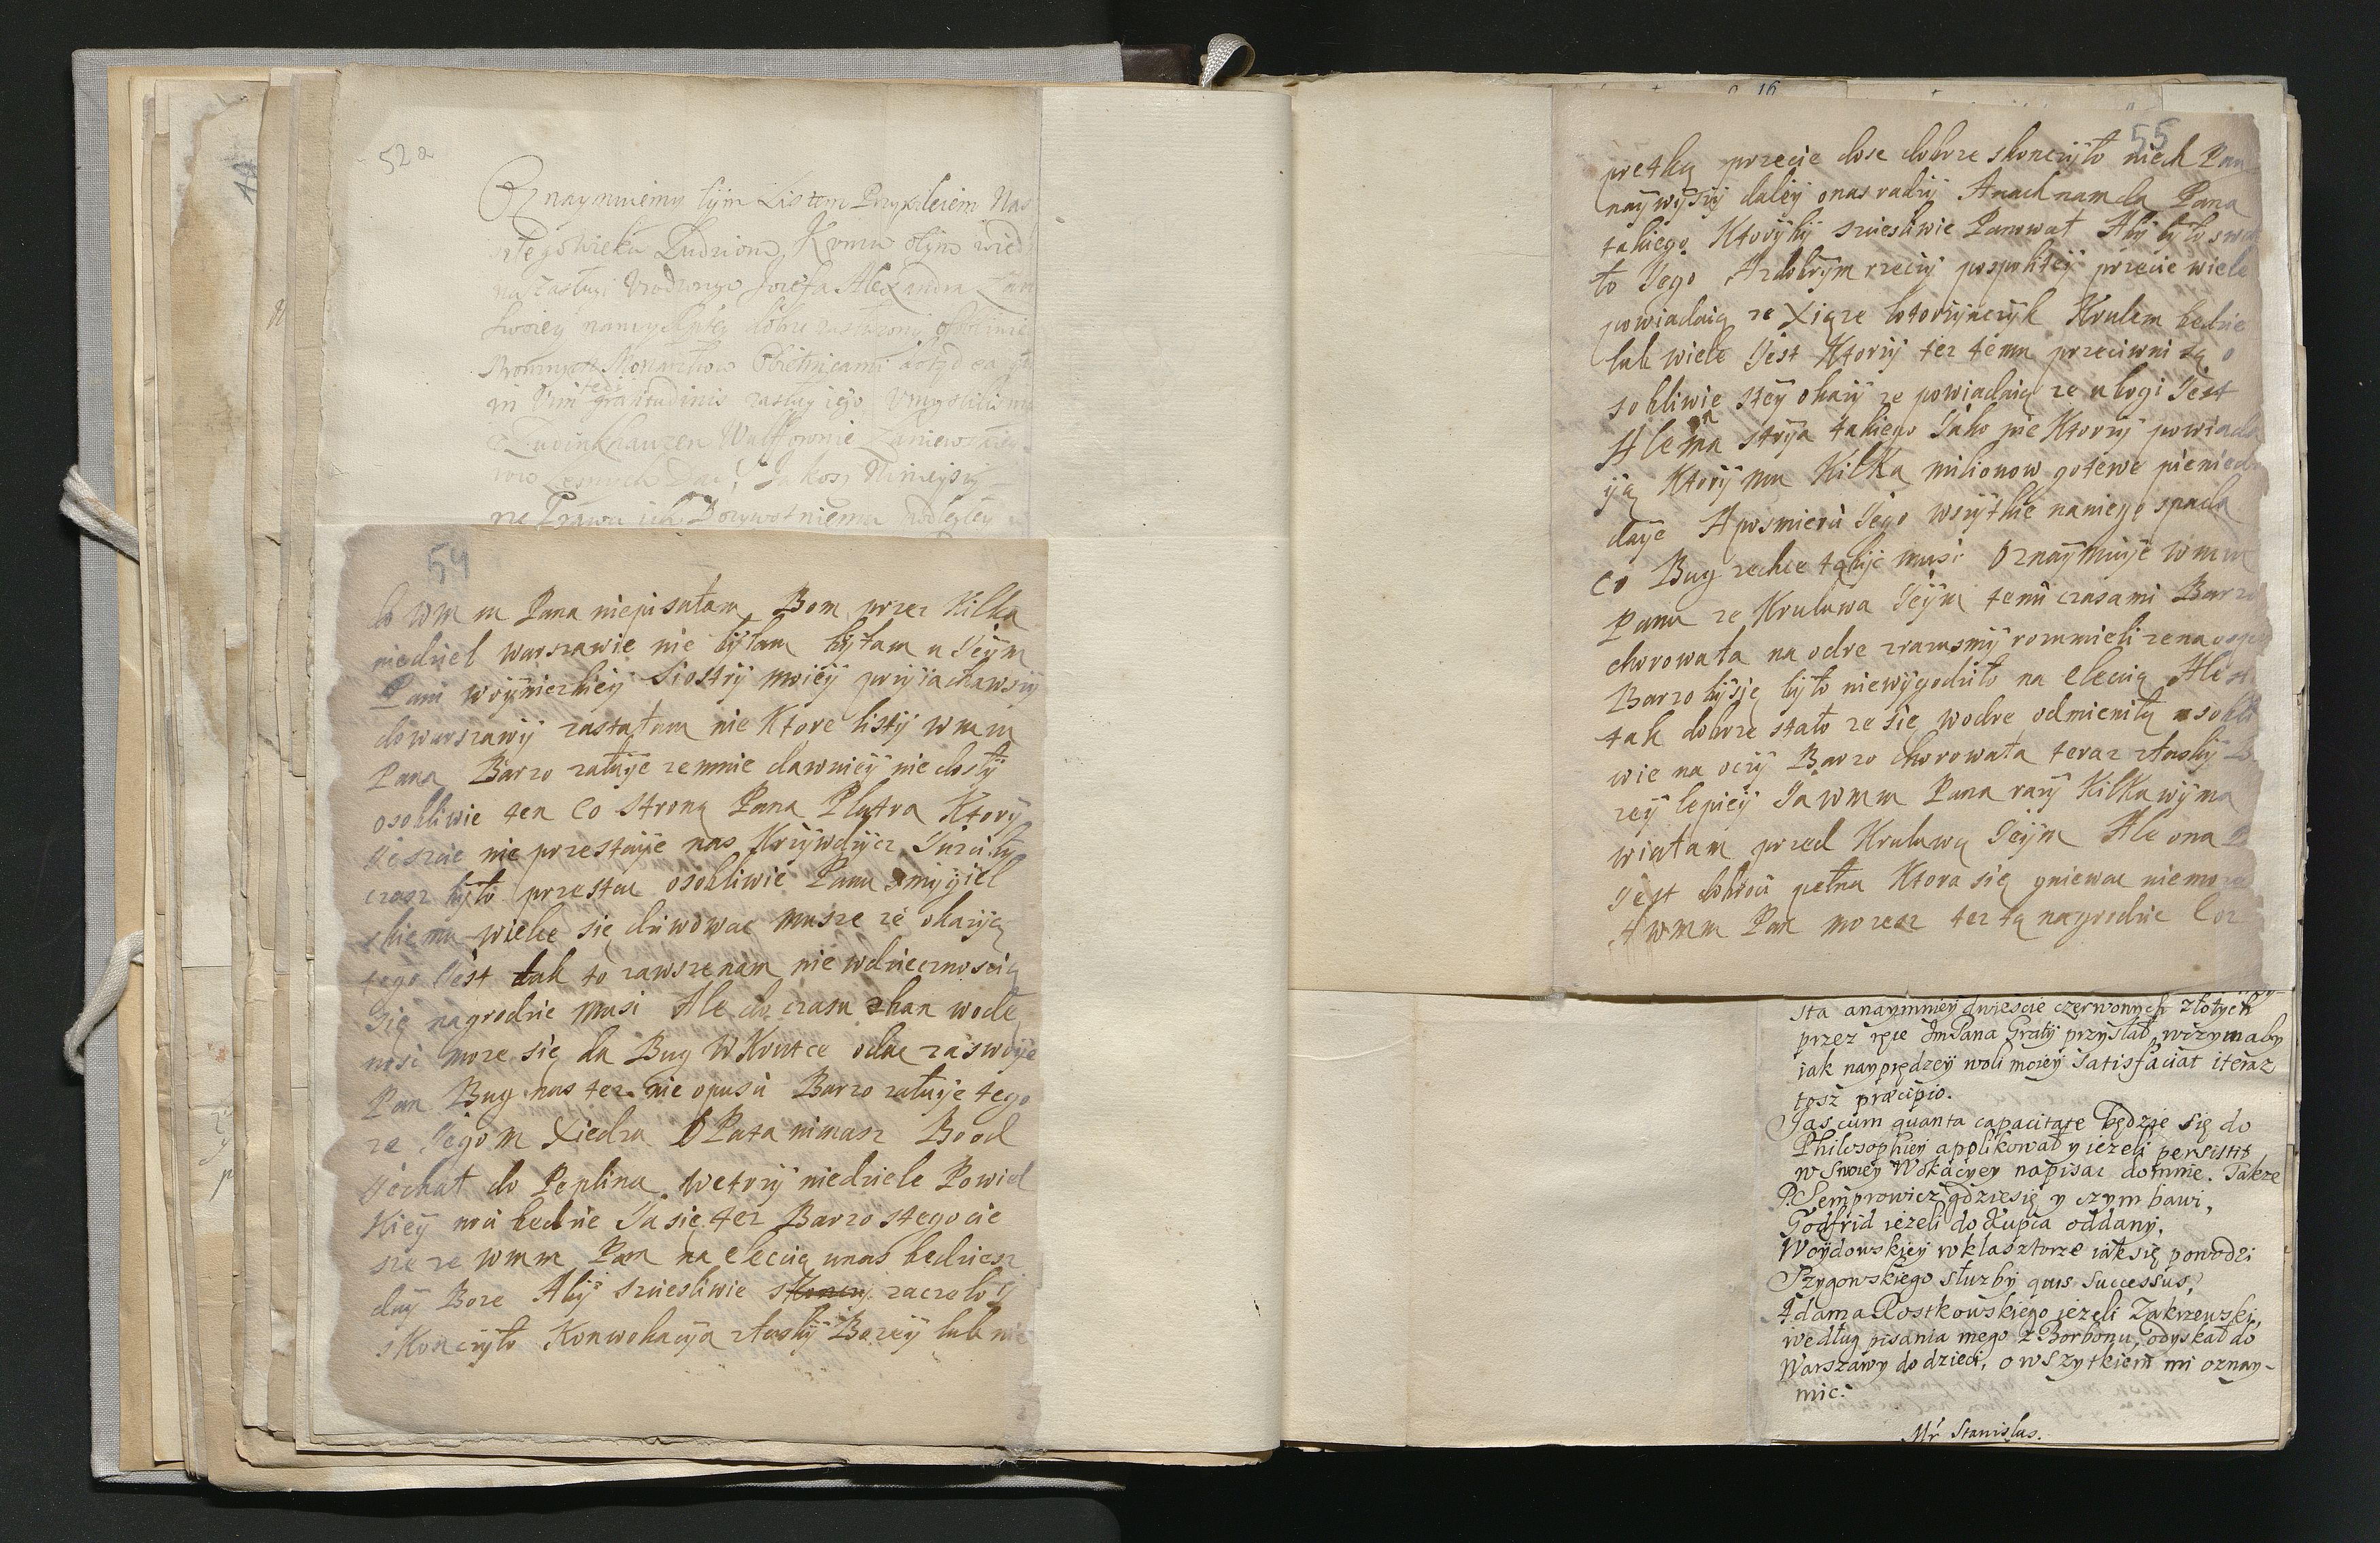 52a
Oznaymuiemy tÿm Listem Przywileiem Nas
Ludziom, Komu otÿm wied
zasługi Urodzonego Jozefa Alexandra Łan
Swoiey namyslnÿ dobrze zasłuzony osobliwie
Monarchow Obietnicami
in Vim gratitudinis zasług iego Umyslilismÿ
Wulffownie Łaniewskiey
Lesnych Dac, Jakosz Ninieÿszÿ
Prawu ich Dozywotniemu podległey
54
lo W M m Pana niepisałam, Bom przez Kilka
niedziel warszawie nie bÿłam bÿłam u Jeÿm
Pani woÿnickieÿ Siostrÿ moieÿ przÿiachawszÿ
dowarszawÿ zastałam nie Ktore listÿ w m m
Pana Barzo załuÿe zemnie dawnieÿ nie doszłÿ
osobliwie ten Co Strona Pana Platra Ktorÿ
Jeszcie nie przestaÿe nas Krzÿwdÿcz Juzci bÿ
czasz bÿło przestac osobliwie Panu Smÿgiel
skiemu wielce się dziwowac musze ze okazÿą
tego Jest tak to zawszenam nie wdziecznoscią
się nagrodzic musi Ale do czasu zban wode
nosi moze się da Bug W Krutce odac zaswoÿe
Pan Bug nas tez nie opusci Barzo załuÿe tego
ze Jego m Xiedza OPata nimasz Bo od
Jechał do Peplina wetrzÿ niedziele Powiel
Kieÿ noci bedzie Ja się tez Barzo stego cie
sze ze wmm Pan na elecią unas bedziesz
daÿ Boze Abÿ szcesliwie skonczÿ zaczeło ÿ
skonczÿło Konwokacÿa złaskÿ Bozeÿ lub nie
55
pretką przecie dosc dobrze skonczÿło niech Pan
naÿwÿszÿ daleÿ onas radzÿ Aniech nam da Pana
takiego Ktorÿbÿ szcesliwie Panował Abÿ bÿło swie
to Jego Azdobrÿm rzeczÿ pospoliteÿ przecie wiele
powiadaią ze Xiąze lotorÿnczÿk Krulem bedzie
lub wiele Jest Ktorzÿ tez temu przeciwni są o
sobliwie steÿ okazÿ ze powiadaią ze ubogi Jest
Ale ma strÿa takiego Jako mie Ktorzÿ powiada
ÿą Ktorÿ mu Kilka milionow gotewe pieniedz
daÿe Aposmierci Jego wszÿtkie naniego spada
Co Bug zechce tobÿc musi Oznaÿmuÿe wmm
Panu ze Krulowa Jeÿm temi czasami Barzo
chorowała na odre zrazusmÿ rozumieli zenaospe
Barzo bÿsię bÿło niewÿgodziło na elecią Ale się
tak dobrze stało ze się wodre odmieniła osobli
wie na oczÿ Barzo chorowała teraz złaskÿ Bo
zeÿ lepieÿ Ja wmm Pana razÿ Kilka wÿma
wiałam przed Krulową Jeÿm Ale ona
Jest dobroci pełna Ktora się gniewac niemoze
A wmm Pan mozesz tez tą nagrodzic
sta anaymnieÿ dwiescie czerwonych złotych
przez ręce JmPana Graty przysłał, wczym aby
iak nayprędzeÿ woli moieÿ satisfaciat iteraz
tosz præcipio.
Jas cum quanta capacitate będzie się do
Philosophiey applikował y iezeli persistit
w Swoiey Wokacyey napisac domnie. Takze
P. Semprowicz gdzie się y czym bawi,
Godfrid iezeli do Kupca oddany,
Woÿdowskiey w klasztorze iak się powodzi
Rzygowskiego słuzby quis Successus,
Adama Rostkowskiego iezeli Zakrzewski,
według pisania mego z Borbonu, odyskał do
Warszawy do dzieci, o wszytkiem mi oznay-
mic.
Mr Stanislas.